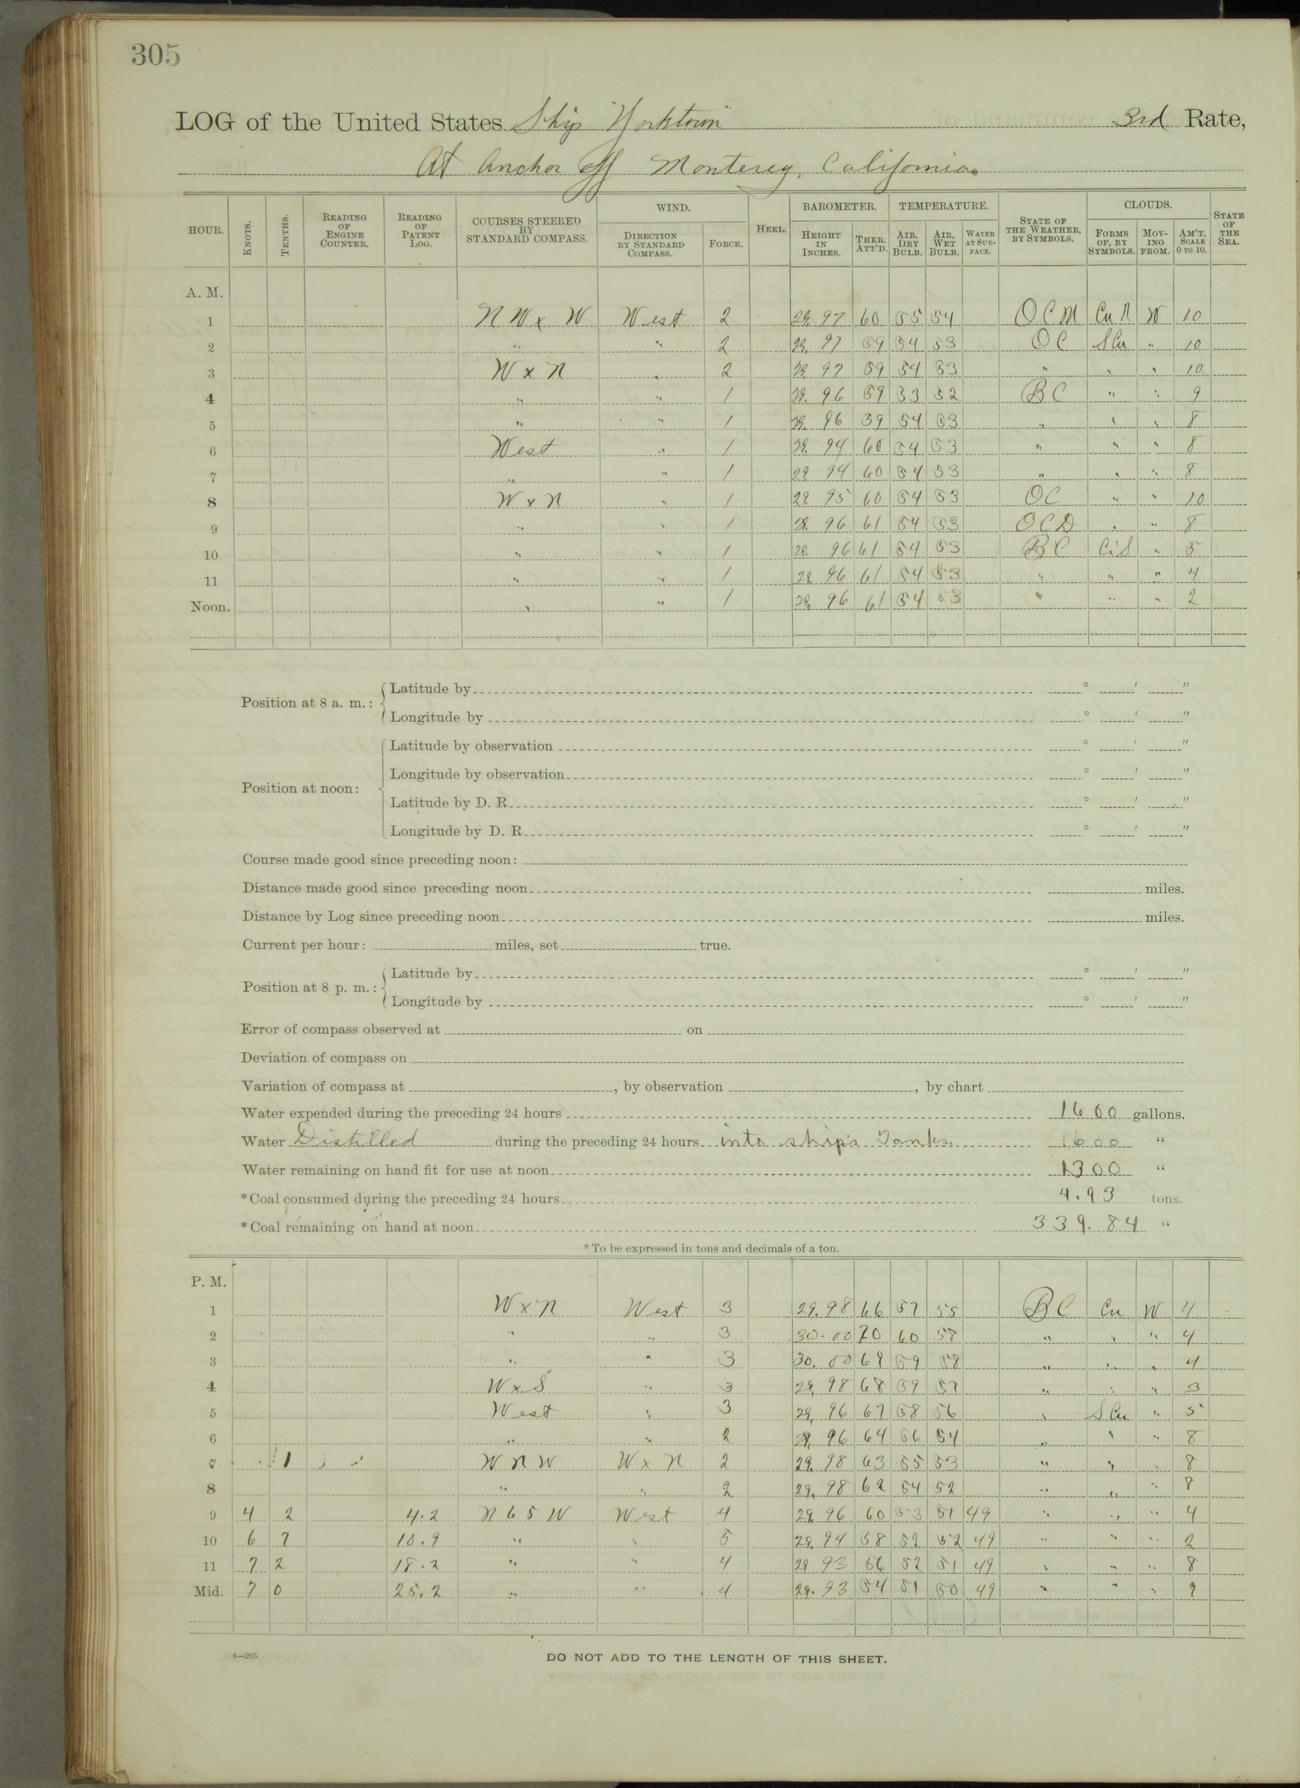 305
LOG of the United States Ship "Yorktown" 3rd Rate,
At Anchor off Monterey, California.
HOUR. KNOTS. TENTHS. READING OF ENGINE COUNTER. READING OF PATENT LOG. COURSES STEERED BY STANDARD COMPASS. WIND. DIRECTION BY STANDARD COMPASS. FORCE. HEEL. BAROMETER. HEIGHT IN INCHES. THER. ATT'D. TEMPERATURE. AIR, DRY BULB. AIR, WET BULB. WATER AT SURFACE. STATE OF THE WEATHER, BY SYMBOLS. CLOUDS. FORMS OF, BY SYMBOLS. MOVING FROM. AM'T. SCALE 0 TO 10. STATE OF THE SEA.
A. M.
1 NW x W West 2 29.97 60 55 54 OCM Cu N W 10
2 " " 2 29.97 59 54 53 OC S Cu " 10
3 W x N " 2 29.97 59 54 53 " " " 10
4 " " 1 29.96 59 53 52 BC " " 9
5 " " 1 29.96 59 54 53 " " " 8
6 West " 1 29.94 60 54 53 " " " 8
7 " " 1 29.94 60 54 53 " " " 8
8 W x N " 1 29.95 60 54 53 OC " " 10
9 " " 1 29.96 61 54 53 OCD " " 8
10 " " 1 29.96 61 54 53 BC Ci S " 5
11 " " 1 29.96 61 54 53 " " " 4
Noon. " " 1 29.96 61 54 53 " " " 2
Position at 8 a. m.: Latitude by ° ′ ″
Longitude by ° ′ ″
Position at noon: Latitude by observation ° ′ ″
Longitude by observation ° ′ ″
Latitude by D. R. ° ′ ″
Longitude by D. R. ° ′ ″
Course made good since preceding noon:
Distance made good since preceding noon miles.
Distance by Log since preceding noon miles.
Current per hour: miles, set true.
Position at 8 p. m.: Latitude by ° ′ ″
Longitude by ° ′ ″
Error of compass observed at on
Deviation of compass on
Variation of compass at , by observation , by chart
Water expended during the preceding 24 hours 1600 gallons.
Water Distilled during the preceding 24 hours into ship's Tanks. 1600 "
Water remaining on hand fit for use at noon 1300 "
*Coal consumed during the preceding 24 hours 4.93 tons.
*Coal remaining on hand at noon 339.84 "
*To be expressed in tons and decimals of a ton.
P. M.
1 W x N West 3 29.98 66 57 55 BC Cu W 4
2 " " 3 30.00 70 60 58 " " " 4
3 " " 3 30.00 69 59 58 " " " 4
4 W x S " 3 29.98 68 59 57 " " " 3
5 West " 3 29.96 67 58 56 " S Cu " 5
6 " " 2 29.96 64 56 54 " " " 8
7 1 WNW W x N 2 29.98 63 55 53 " " " 8
8 " " 2 29.98 62 54 52 " " " 8
9 4 2 4.2 N 65 W West 4 29.96 60 53 51 49 " " " 4
10 6 7 10.9 " " 5 29.94 58 52 52 49 " " " 2
11 7 2 18.2 " " 4 29.93 56 52 51 49 " " " 8
Mid. 7 0 25.2 " " 4 29.93 54 51 50 49 " " " 9
4—265
DO NOT ADD TO THE LENGTH OF THIS SHEET.